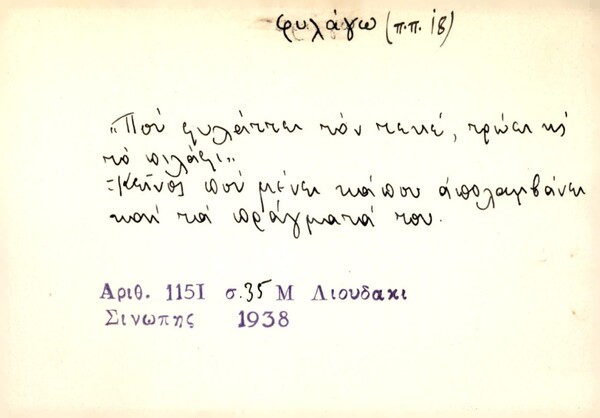 φυλάγω (π.π. 18)
"Ποὺ φυλάττει τὸν τεκέ, τρώει κὶ
τὸ πιλάφι"
Ξκεῖνος ποὺ μένει κάπου ἀπολαμβάνει
καὶ τὰ πράγματά του.
Αριθ. 1151 σ.35 Μ Λιουδακι
Σινωπης 1938